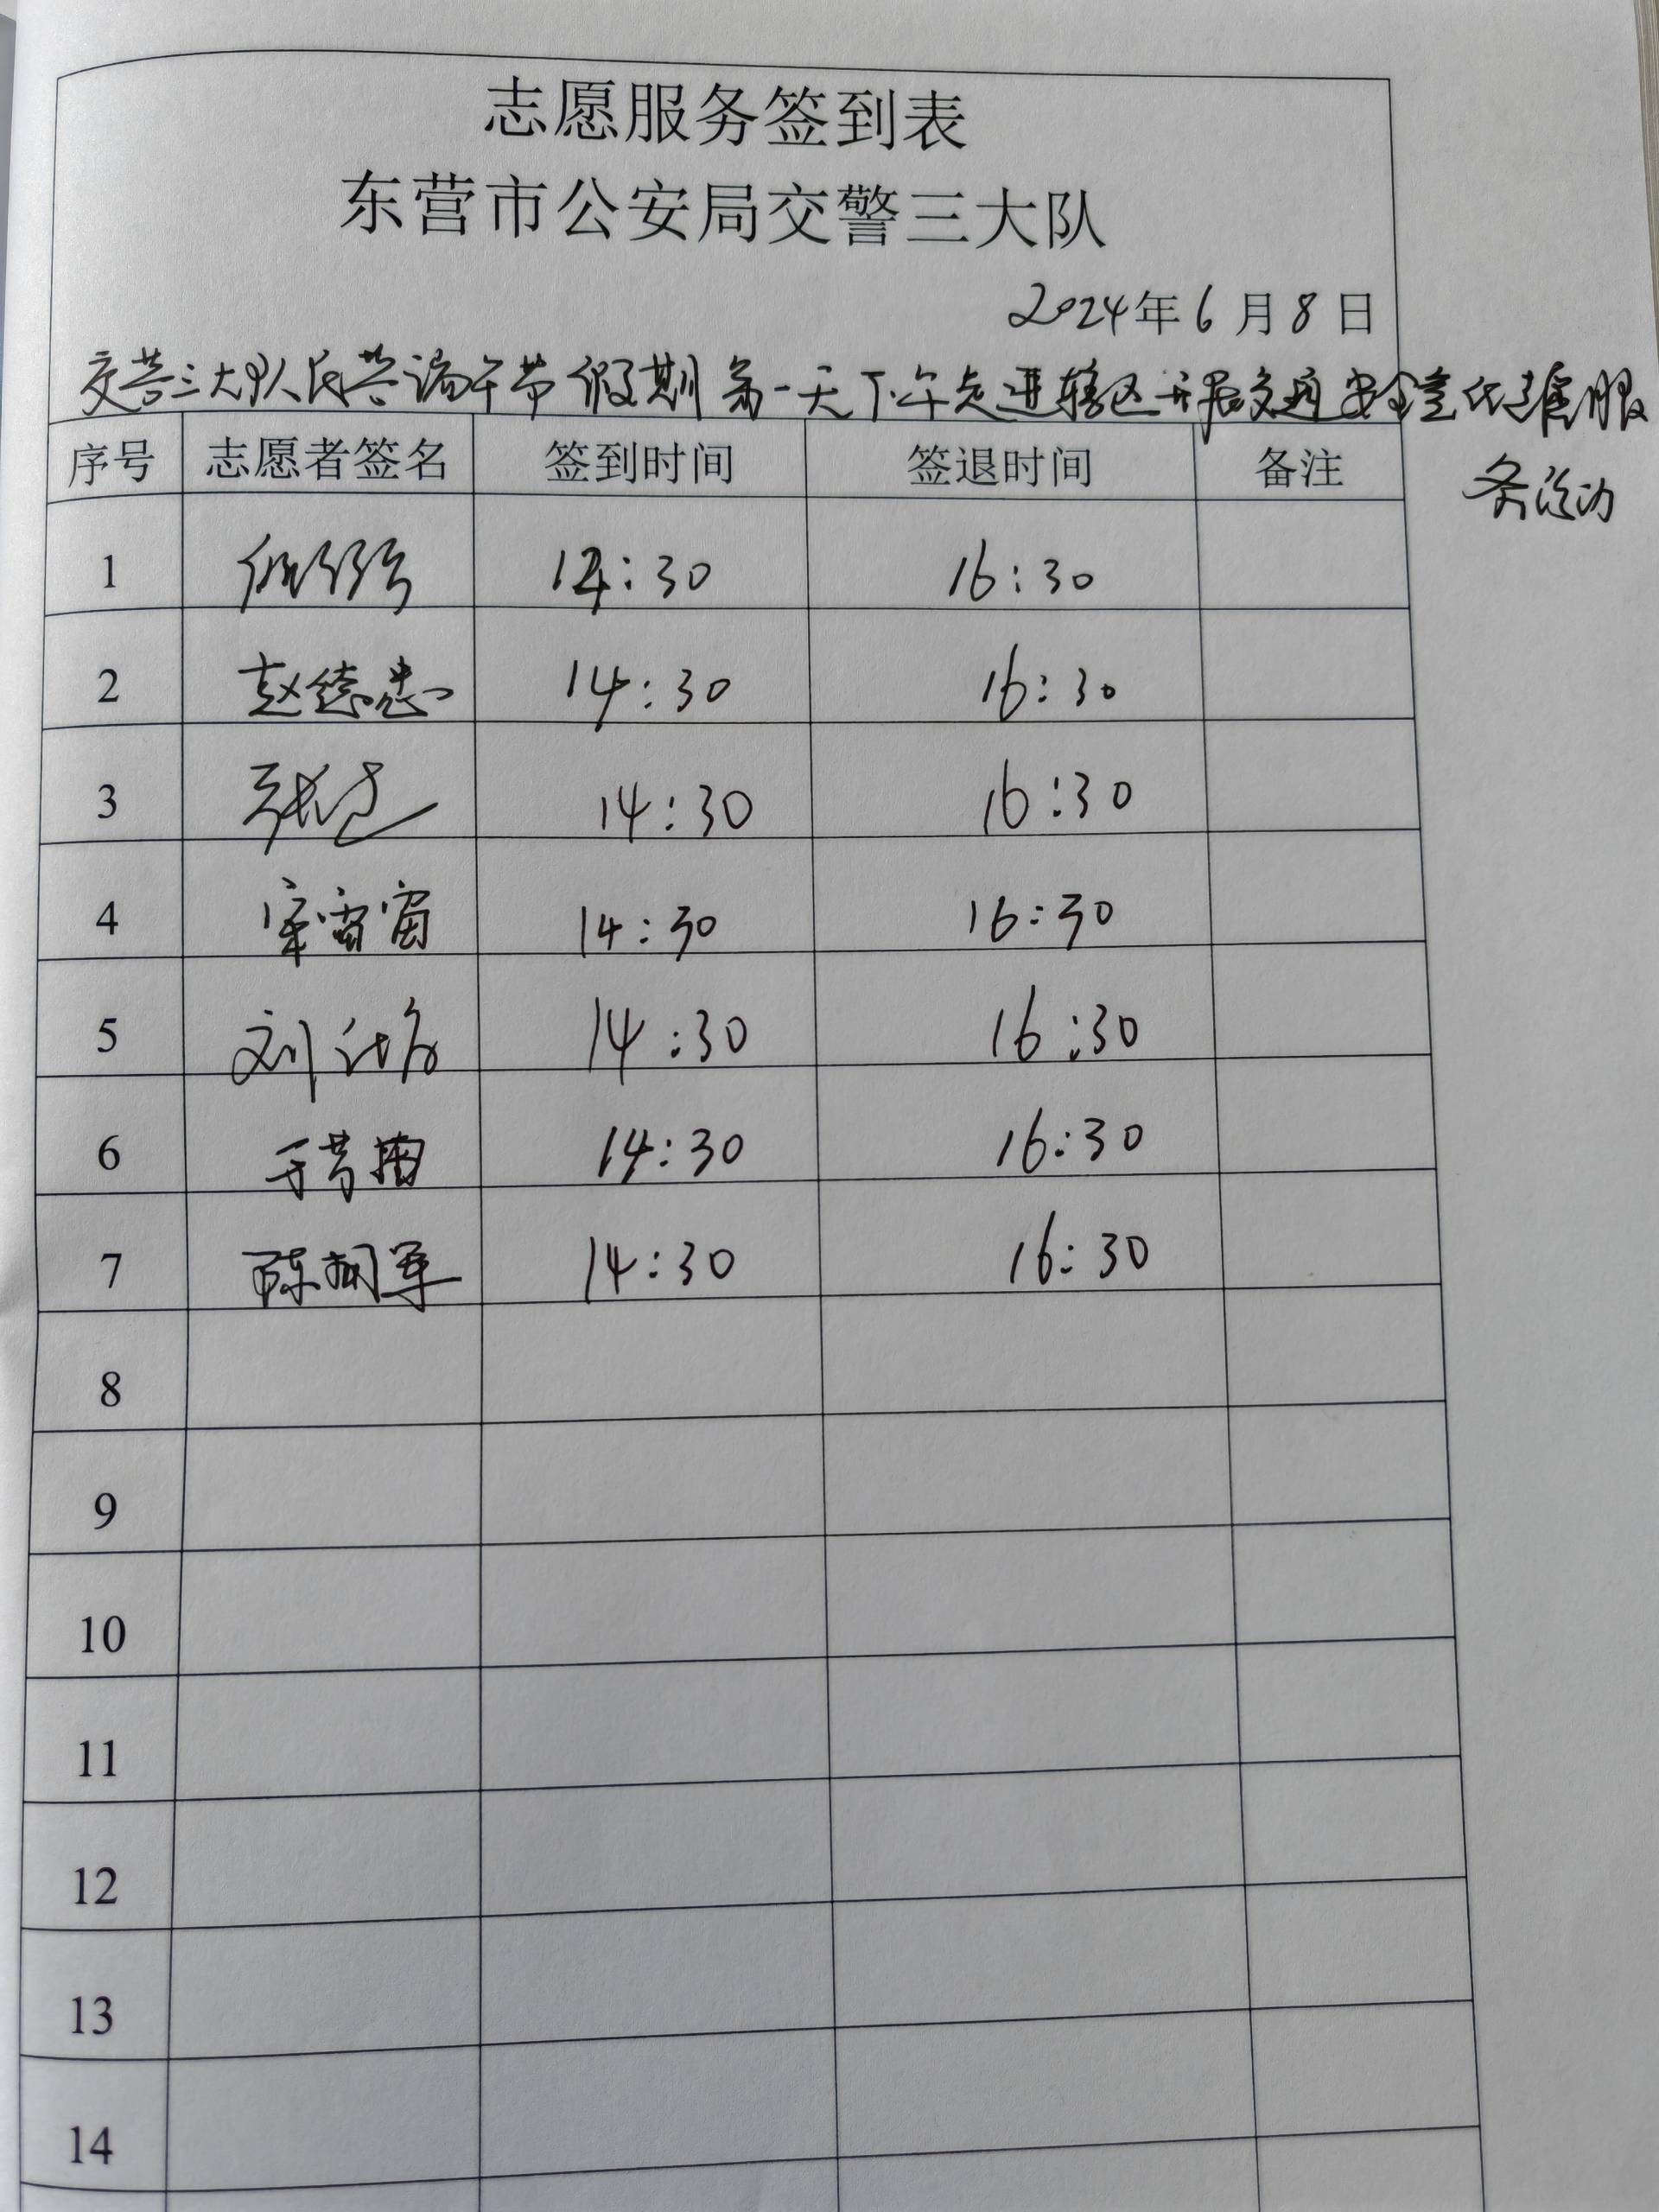 志愿服务签到表
东营市公安局交警三大队
2024年6月8日
交警三大队民警端午节假期第一天下午走进辖区开展交通安全宣传志愿服
务活动
序号 志愿者签名 签到时间 签退时间 备注
1 14:30 16:30
2 赵德忠 14:30 16:30
3 张 14:30 16:30
4 14:30 16:30
5 刘 14:30 16:30
6 于 14:30 16:30
7 陈 军 14:30 16:30
8
9
10
11
12
13
14